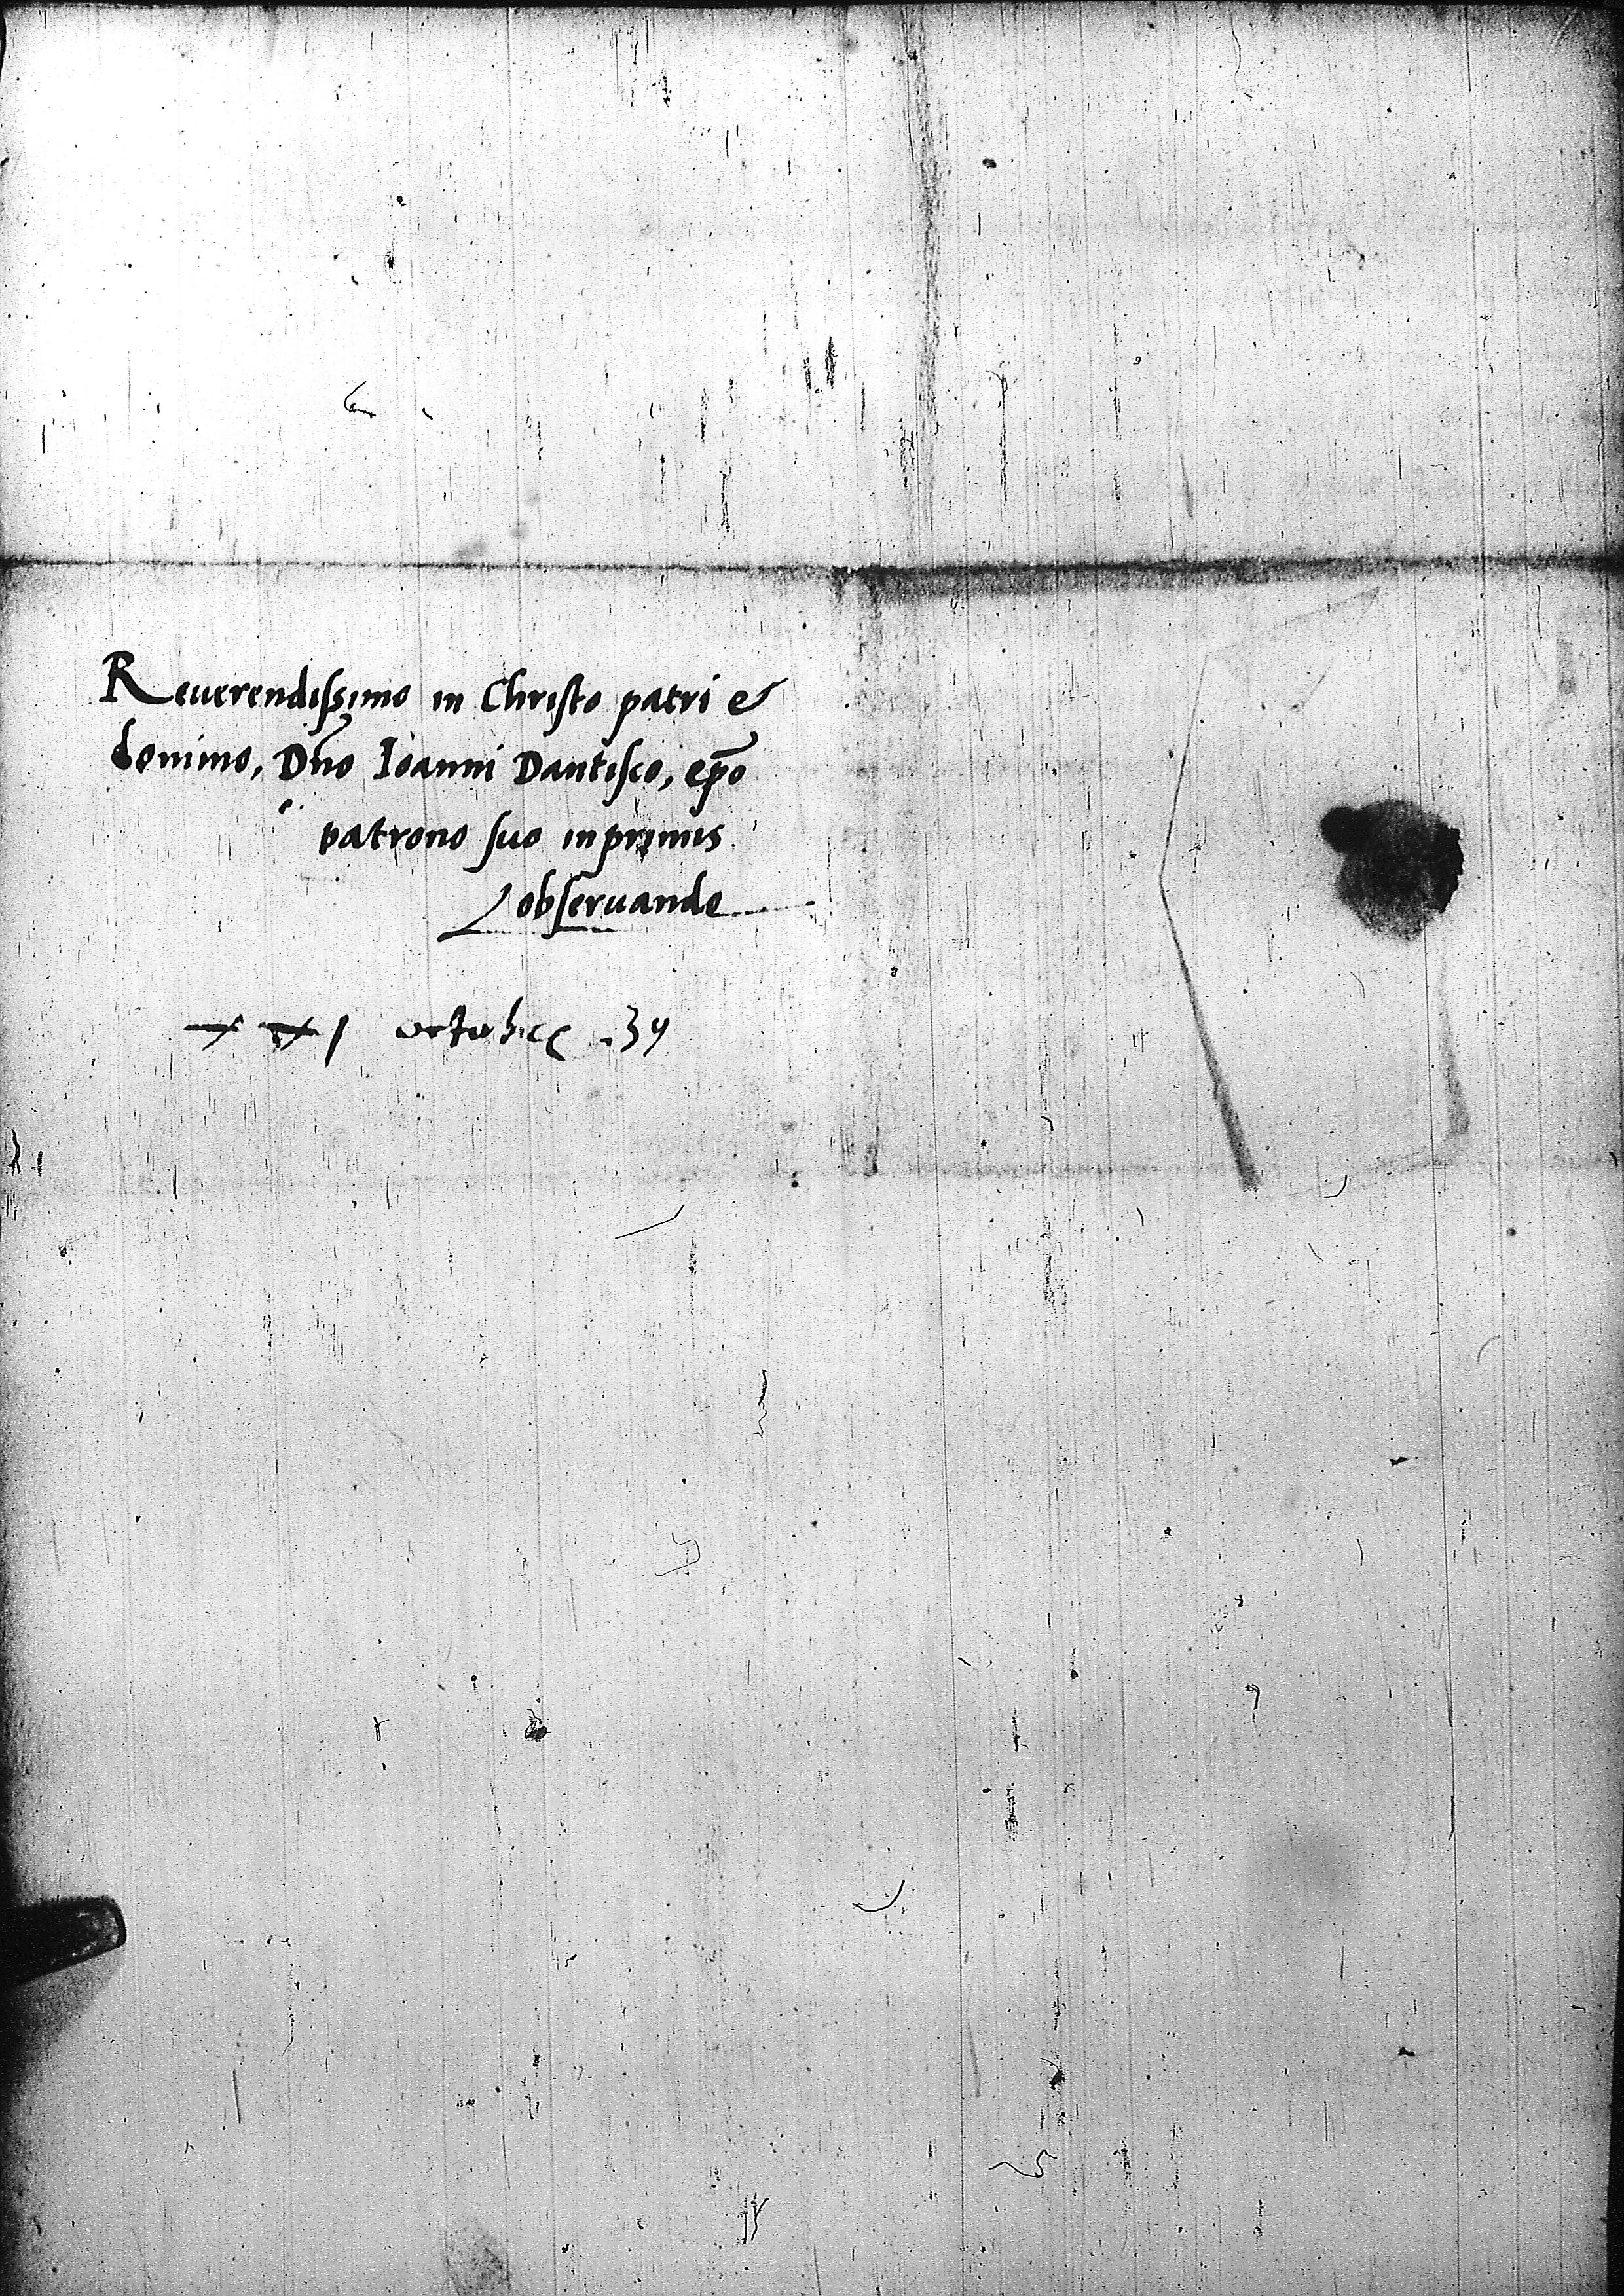 Reuerendissimo in Christo patri et
domino, Dño Ioanni Dantisco, ep̃o
patrono suo inprimis
obseruando
xxj octobris .39